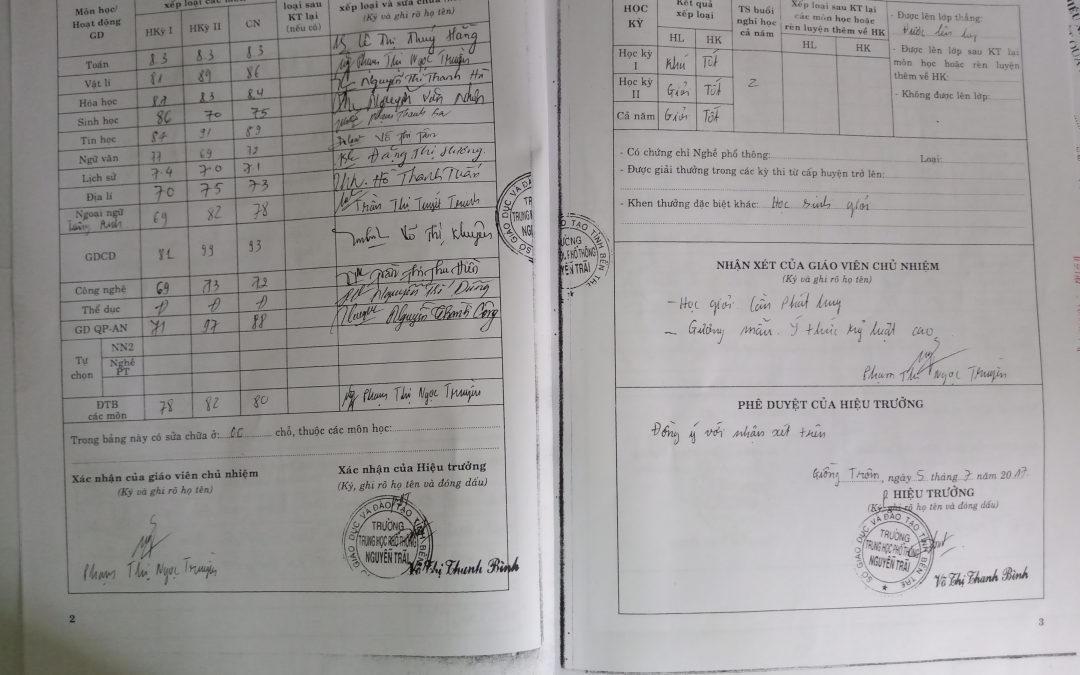 Môn học/
Hoạt động
GD
HKỳ I
HKỳ II
CN
loại sau
KT lại
(nếu có)
xếp loại và sửa chữa
(Ký và ghi rõ họ tên)
Toán 8.3 8.3 8.3 Lê Thị Thuý Hằng
Vật lí 81 89 86 Phạm Thị Ngọc Truyền
Hóa học 83 84 Nguyễn Thị Thanh Hà
Sinh học 86 70 75 Nguyễn Văn
Tin học 91 89 Phạm Thanh
Ngữ văn 77 69 72 Võ Thị
Lịch sử 7.4 7.0 7.1 Đặng Thị Hương
Địa lí 70 75 73 Hồ Thanh Tuấn
Ngoại ngữ
Tiếng Anh 69 82 78 Trần Thị Tuyết Trinh
GDCD 81 99 93 Võ Thị Khuyên
Công nghệ 69 73 72 Trần Thị Thu Hiền
Thể dục Đ Đ Đ Nguyễn Thị Dung
GD QP-AN 71 97 88 Nguyễn Thành Công
Tự
chọn
NN2
Nghề
PT
ĐTB
các môn 78 82 80 Phạm Thị Ngọc Truyền
Trong bảng này có sửa chữa ở: 00 chỗ, thuộc các môn học:
Xác nhận của giáo viên chủ nhiệm
(Ký và ghi rõ họ tên)
Phạm Thị Ngọc Truyền
Xác nhận của Hiệu trưởng
(Ký, ghi rõ họ tên và đóng dấu)
SỞ GIÁO DỤC VÀ ĐÀO TẠO TỈNH BẾN TRE
TRƯỜNG
TRUNG HỌC PHỔ THÔNG
NGUYỄN TRÃI
Võ Thị Thanh Bình
2
HỌC
KỲ
Kết quả
xếp loại
HL HK
TS buổi
nghỉ học
cả năm
Xếp loại sau KT lại
các môn học hoặc
rèn luyện thêm về HK
HL HK
Học kỳ
I Khá Tốt
Học kỳ
II Giỏi Tốt
2
Cả năm Giỏi Tốt
- Được lên lớp thẳng:
Được lên lớp
- Được lên lớp sau KT lại
môn học hoặc rèn luyện
thêm về HK:
- Không được lên lớp:
- Có chứng chỉ Nghề phổ thông: Loại:
- Được giải thưởng trong các kỳ thi từ cấp huyện trở lên:
- Khen thưởng đặc biệt khác: Học sinh giỏi
NHẬN XÉT CỦA GIÁO VIÊN CHỦ NHIỆM
(Ký và ghi rõ họ tên)
- Học giỏi. Cần phát huy
- Gương mẫu. Ý thức kỷ luật cao.
Phạm Thị Ngọc Truyền
PHÊ DUYỆT CỦA HIỆU TRƯỞNG
Đồng ý với nhận xét trên
Giồng Trôm, ngày 5 tháng 7 năm 2017
HIỆU TRƯỞNG
(Ký, ghi rõ họ tên và đóng dấu)
SỞ GIÁO DỤC VÀ ĐÀO TẠO TỈNH BẾN TRE
TRƯỜNG
TRUNG HỌC PHỔ THÔNG
NGUYỄN TRÃI
Võ Thị Thanh Bình
3